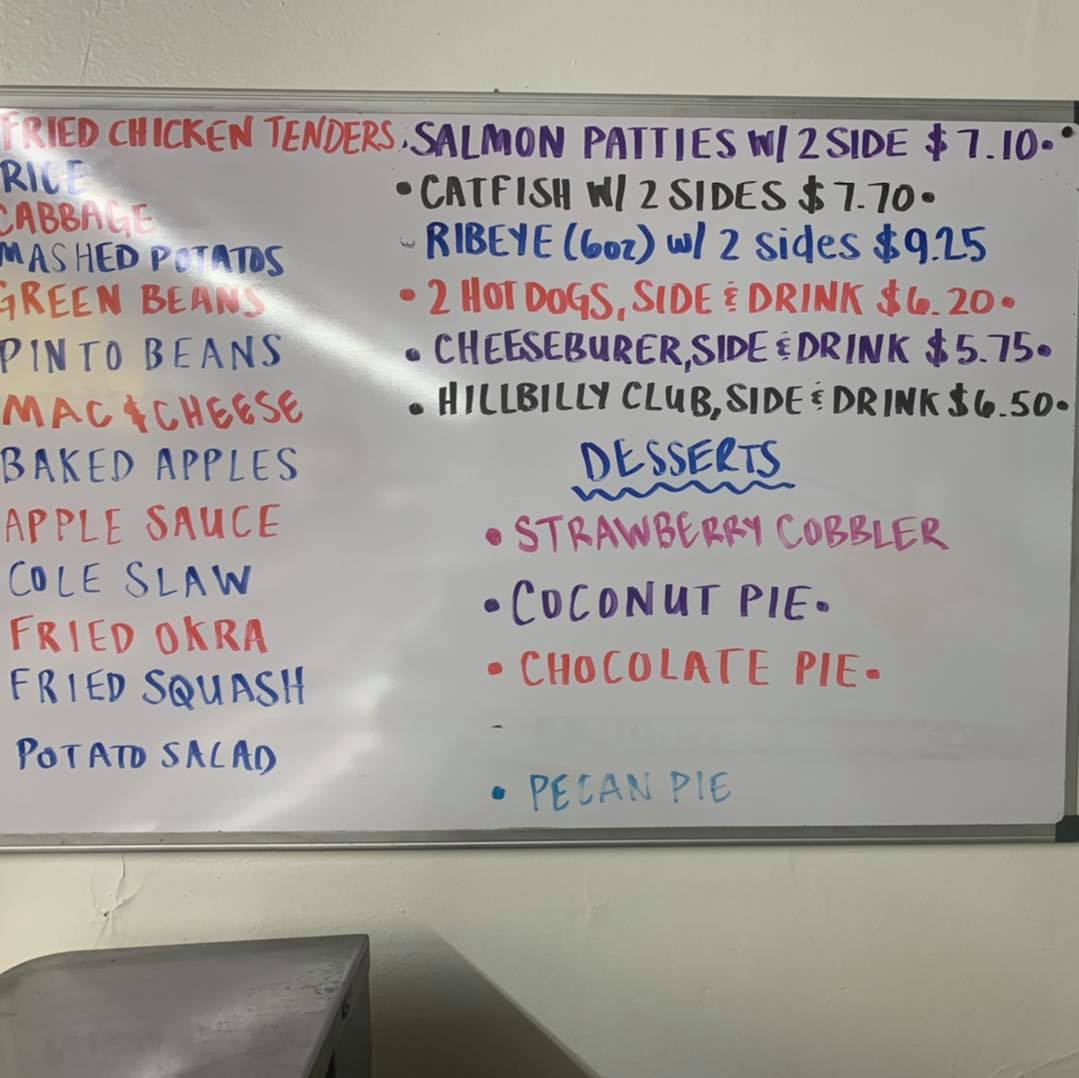 FRIED CHICKEN TENDERS
RICE
CABBAGE
MASHED POTATOS
GREEN BEANS
PINTO BEANS
MAC & CHEESE
BAKED APPLES
APPLE SAUCE
COLE SLAW
FRIED OKRA
FRIED SQUASH
POTATO SALAD
• SALMON PATTIES W/ 2 SIDE $7.10•
• CATFISH W/ 2 SIDES $7.70•
RIBEYE (6oz) w/ 2 sides $9.25
• 2 HOT DOGS, SIDE & DRINK $6.20•
• CHEESEBURER, SIDE & DRINK $5.75•
• HILLBILLY CLUB, SIDE & DRINK $6.50•
DESSERTS
• STRAWBERRY COBBLER
• COCONUT PIE•
• CHOCOLATE PIE•
• PECAN PIE